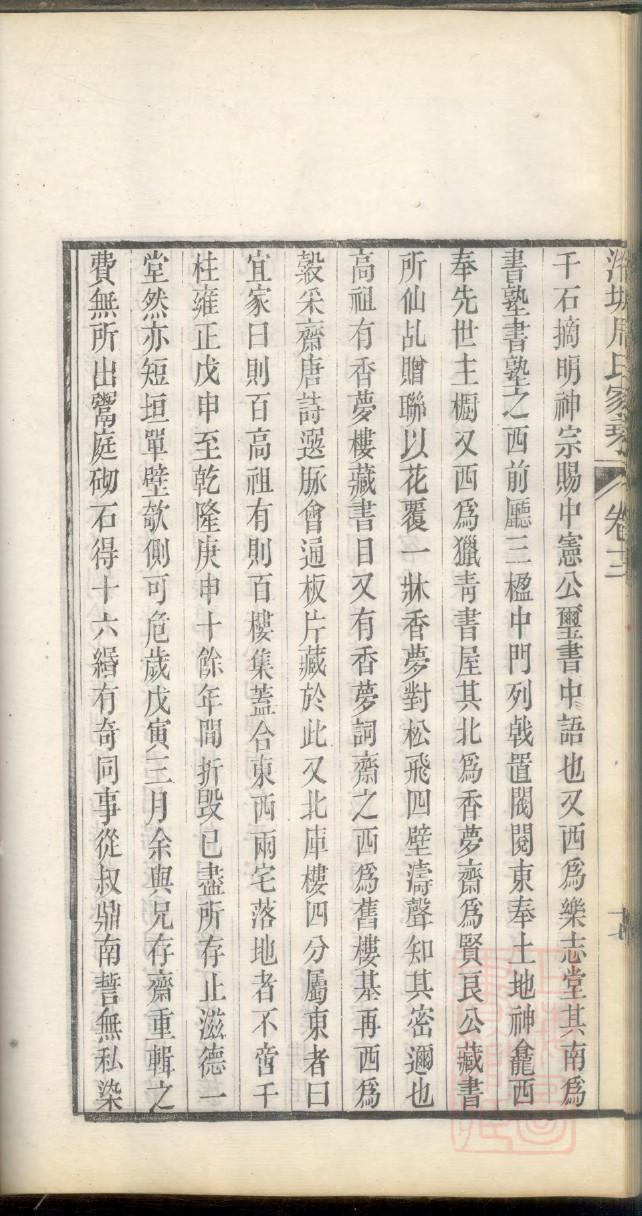 周氏家 卷三
千石摘明神宗賜中憲公璽書中語也又西爲樂志堂其南爲
書塾書塾之西前廳三楹中門列戟置閥閱東奉土地神龕西
奉先世主櫥又西爲獵青書屋其北爲香夢齋爲賢良公藏書
所仙乩贈聯以花覆一牀香夢對松飛四壁濤聲知其密邇也
高祖有香夢樓藏書目又有香夢詞齋之西爲舊樓基再西爲
穀采齋唐詩選脉會通板片藏於此又北庫樓四分屬東者曰
宜家曰則百高祖有則百樓集蓋合東西兩宅落地者不啻千
柱雍正戊申至乾隆庚申十餘年間折毀已盡所存止滋德一
堂然亦短垣單壁欹側可危歲戊寅三月余與兄存齋重輯之
費無所出鬻庭砌石得十六緡有奇同事從叔鼎南誓無私染